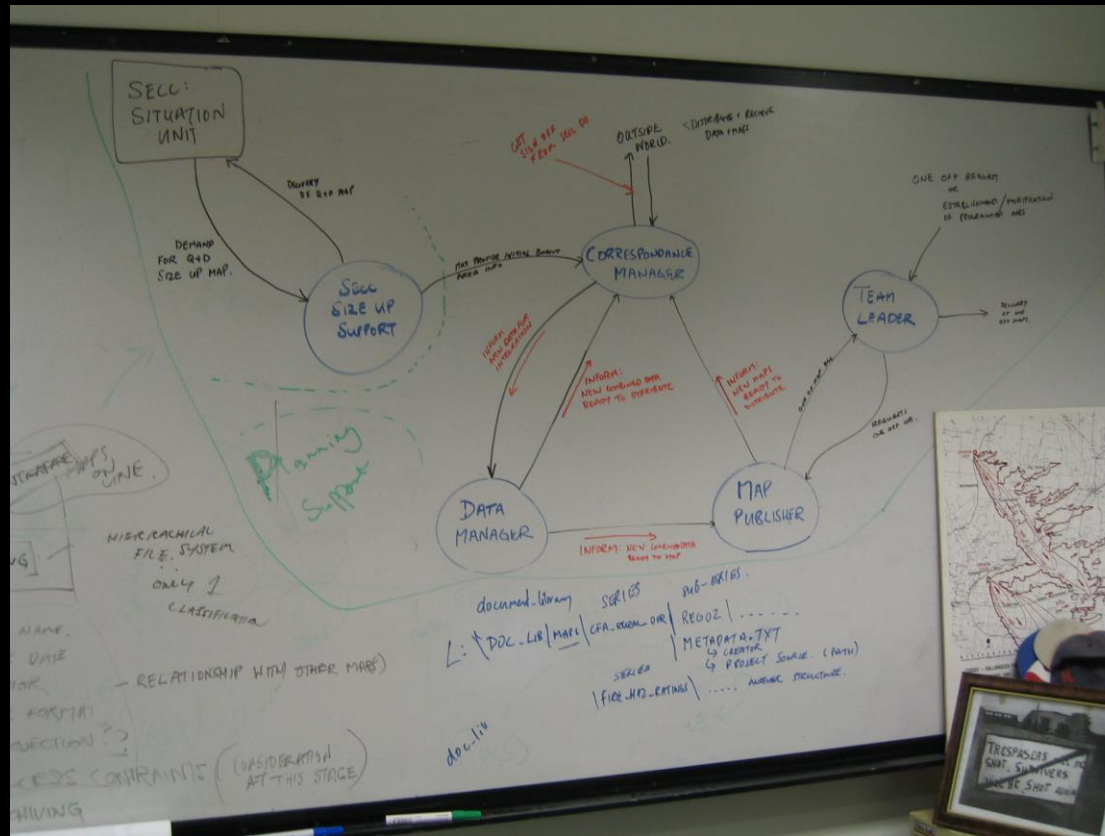 SECC:
SITUATION
UNIT
DELIVERY
OF Q+D MAP
DEMAND
FOR Q+D
SIZE UP MAP.
SECC
SIZE UP
SUPPORT
MAY PROVIDE INITIAL
AREA INFO
GET
SIGN OFF
FROM SECC DO
OUTSIDE
WORLD.
DISTRIBUTE + RECEIVE
DATA + MAPS
CORRESPONDANCE
MANAGER
ONE OFF
OR
ESTABLISHMENT/MODIFICATION
OF PROGRAMMED
TEAM
LEADER
DELIVERY
OF
OFF MAPS.
INFORM:
NEW DATA FOR
INTEGRATION
INFORM:
NEW COMBINED DATA
READY TO DISTRIBUTE
INFORM:
NEW MAPS
READY TO
DISTRIBUTE
ONE OFF MAP
REQUEST:
ONE OFF
Planning
Support
DATA
MANAGER
MAP
PUBLISHER
INFORM: NEW COMBINED DATA
READY TO MAP.
MAPS
ON
LINE.
HIERRACHICAL
FILE SYSTEM
only 1
CLASSIFICATION
NAME.
DATE
FORMAT
- RELATIONSHIP WITH OTHER MAPS)
CONTRAINTS. (CONSIDERATION
AT THIS STAGE)
document_library SERIES sub-SERIES.
L:\DOC_LIB\MAPS\CFA_RURAL_OPR\REG02\......
METADATA.TXT
↳ CREATOR
↳ PROJECT SOURCE. (PATH)
SERIES
\FIRE_HAZ_RATINGS\..... ANOTHER STRUCTURE.
doc_lib
TRESPASERS
SHOT. SURVIVERS
WILL BE SHOT AGAIN